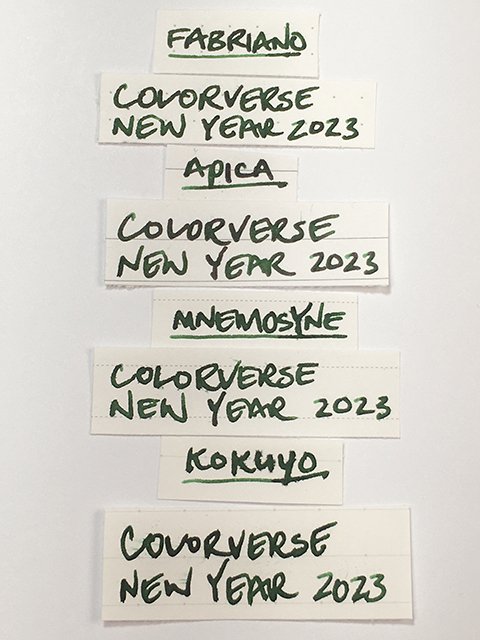 FABRIANO
COLORVERSE
NEW YEAR 2023
APICA
COLORVERSE
NEW YEAR 2023
MNEMOSYNE
COLORVERSE
NEW YEAR 2023
KOKUYO
COLORVERSE
NEW YEAR 2023